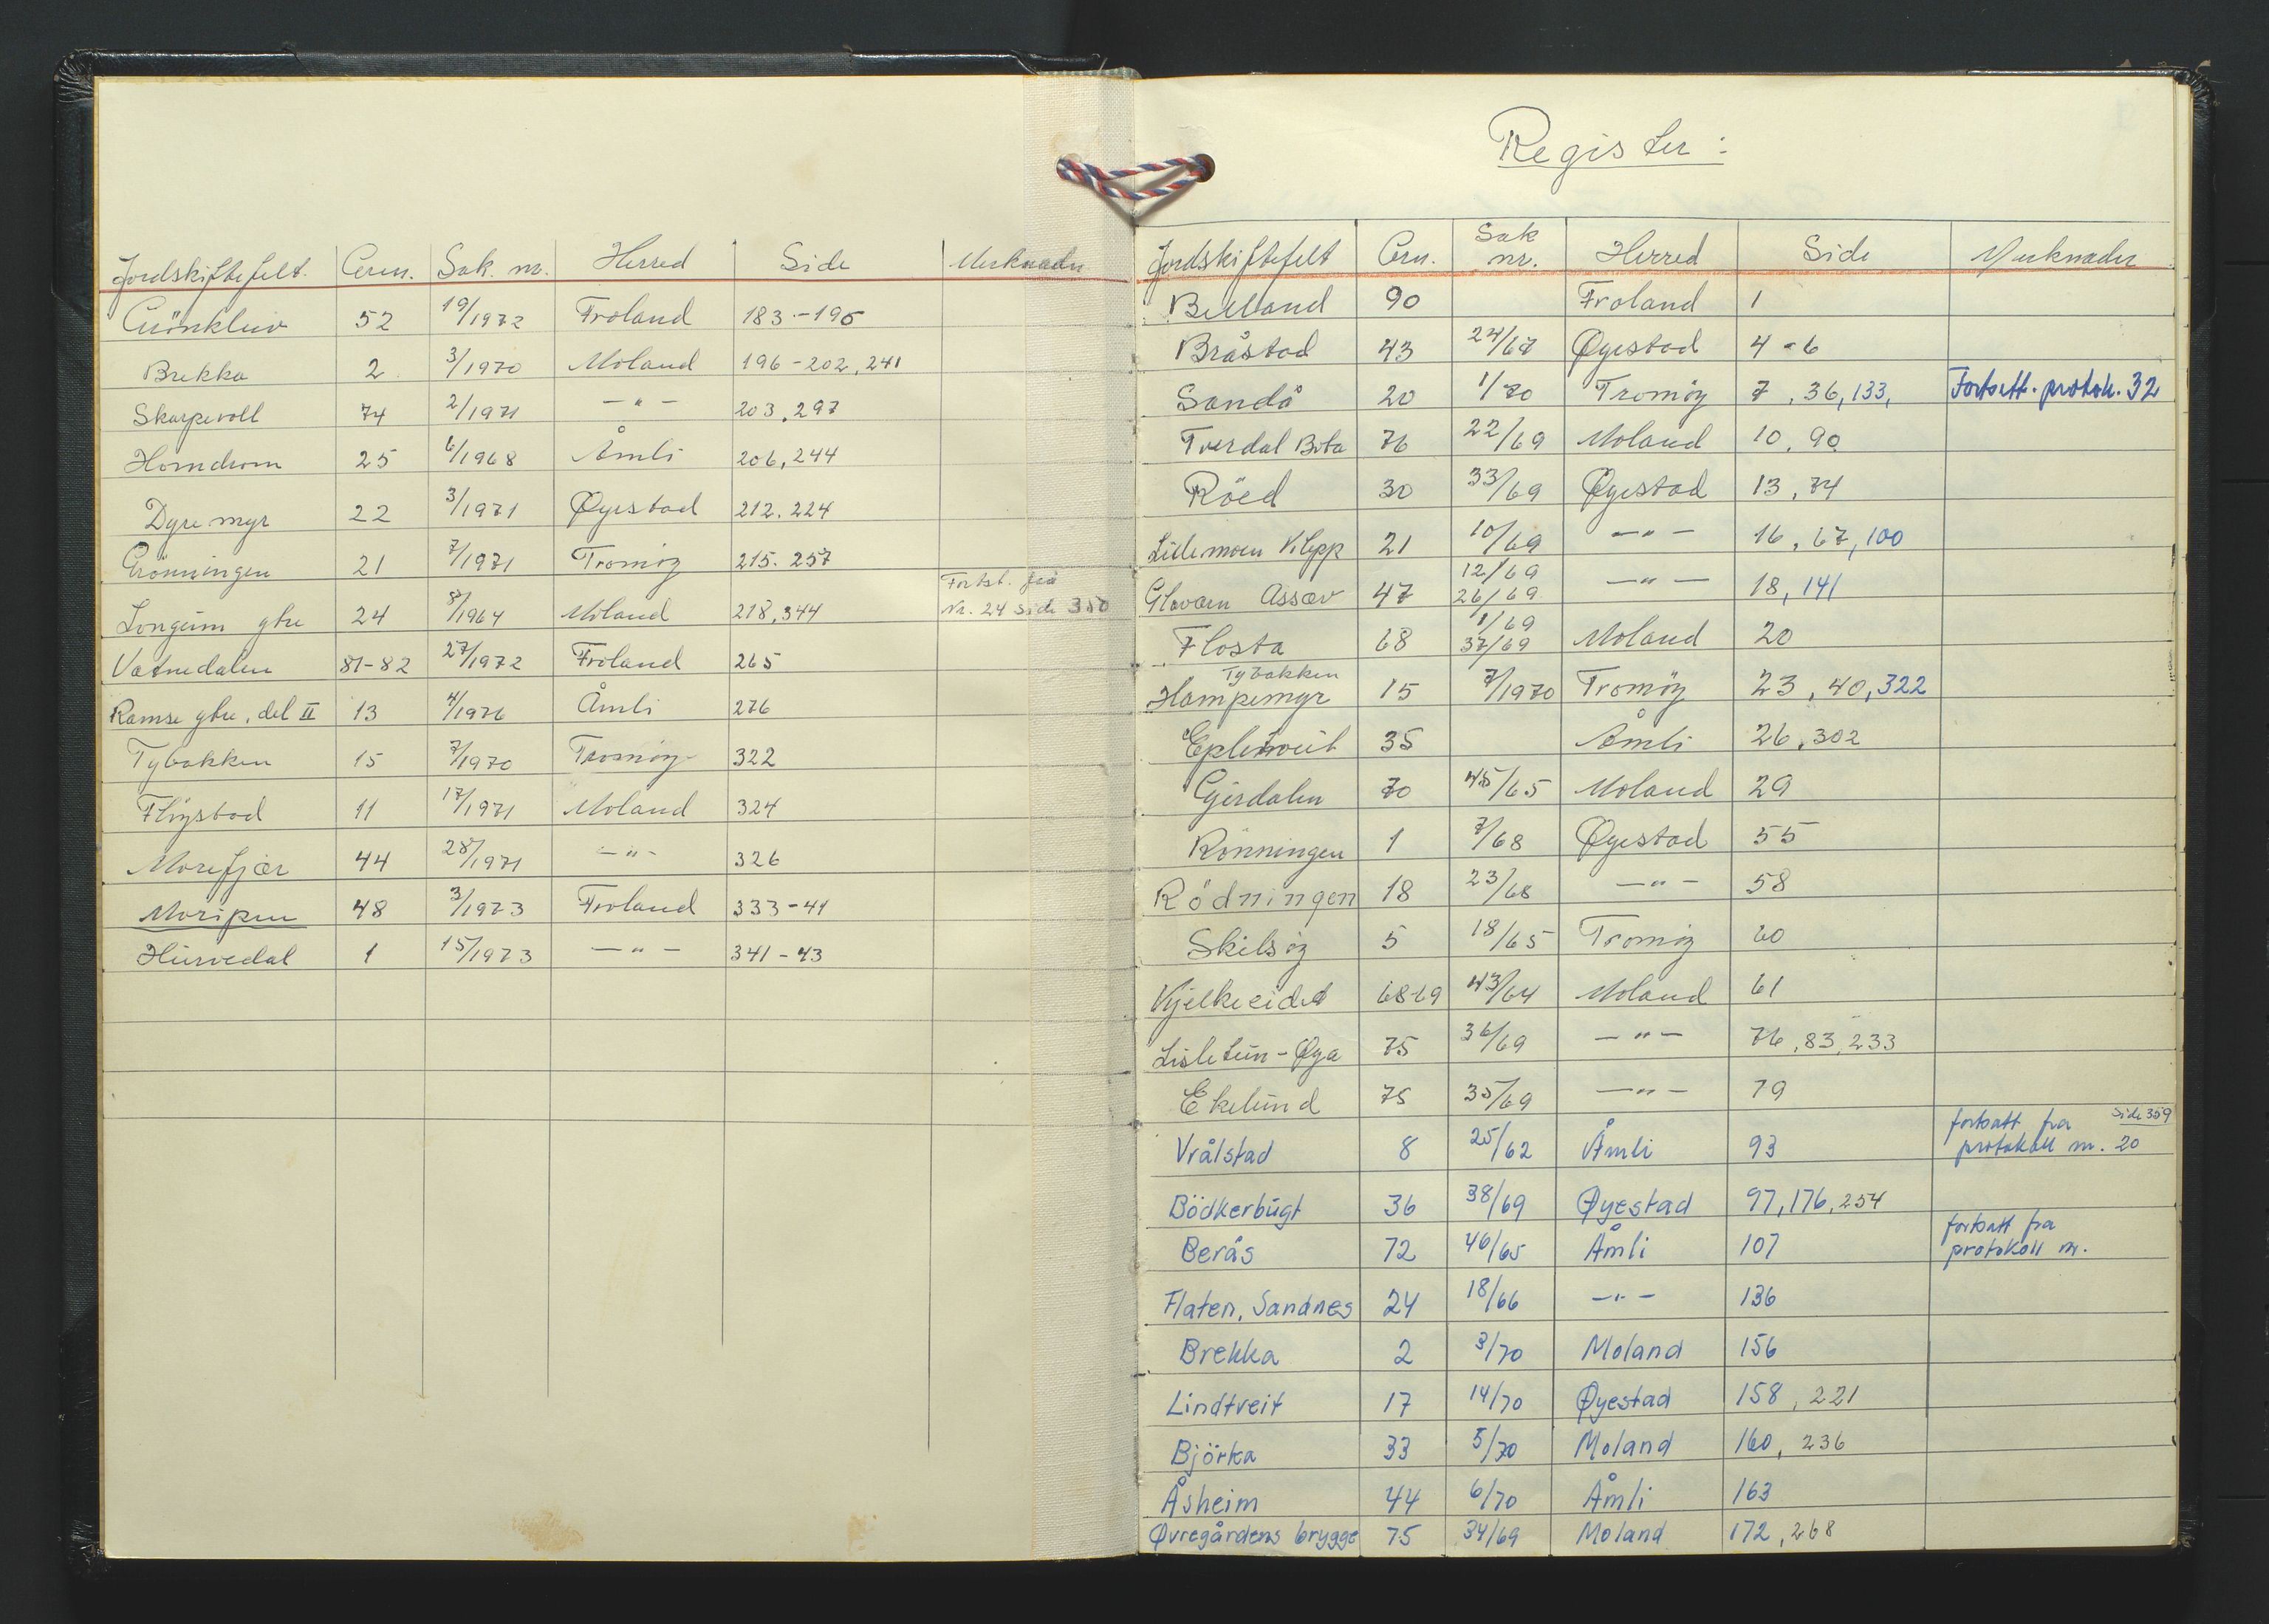 Jordskiftefelt. Gnr. Sak. nr. Herred Side Merknader
52 19/1972 Froland 183-195
Brekka 2 3/1970 Moland 196-202, 241
Skarpevoll 74 2/1971 -"- 203, 297
25 6/1968 Åmli 206, 244
Dyremyr 22 3/1971 Øyestad 212. 224
Grönningen 21 7/1971 Tromöy 215. 257
Longum gbr 24 8/1964 Moland 218, 344 Fortst. frå
Nr. 24 side 350
Vatnedalen 81-82 27/1972 Froland 265
Ramse gbr. del II 13 4/1976 Åmli 276
Tybakken 15 7/1970 Tromöy 322
Flöystad 11 17/1971 Moland 324
Morefjær 44 28/1971 -"- 326
Moripen 48 3/1973 Froland 333-41
Hurvedal 1 15/1973 -"- 341-43
Register:
Jordskiftefelt Gnr. Sak nr. Herred Side Merknader
Belland 90 Froland 1
Bråstad 43 24/67 Øyestad 4-6
Sandå 20 1/70 Tromöy 7, 36, 133, Fortsett. protok. 32
Tverdal Bota 76 22/69 Moland 10, 90
Röed 30 33/69 Øyestad 13, 74
Lillemoen Klepp 21 10/69 -"- 16, 67, 100
12/69
Glavam Assæv 47 26/69 -"- 18, 141
1/69
Flosta 68 37/69 Moland 20
Tybakken
Hampemyr 15 7/1970 Tromöy 23, 40, 322
Epletveit 35 Åmli 26, 302
Gjerdalen 70 45/65 Moland 29
Rönningen 1 7/68 Øyestad 55
Rödningen 18 23/68 -"- 58
Skilsöy 5 18/65 Tromöy 60
Kjelkeeidet 68-69 43/64 Moland 61
Lisletun-Øya 75 36/69 -"- 76, 83, 233
Ekelund 75 35/69 -"- 79
Vrålstad 8 25/62 Åmli 93 fortsatt fra side 359
protokoll nr. 20
Bödkerbugt 36 38/69 Øyestad 97, 176, 254
Berås 72 46/65 Åmli 107 fortsatt fra
protokoll nr.
Flaten, Sandnes 24 18/66 -"- 136
Brekka 2 3/70 Moland 156
Lindtveit 17 14/70 Øyestad 158, 221
Björka 33 5/70 Moland 160, 236
Åsheim 44 6/70 Åmli 163
Øvregårdens brygge 75 34/69 Moland 172, 268